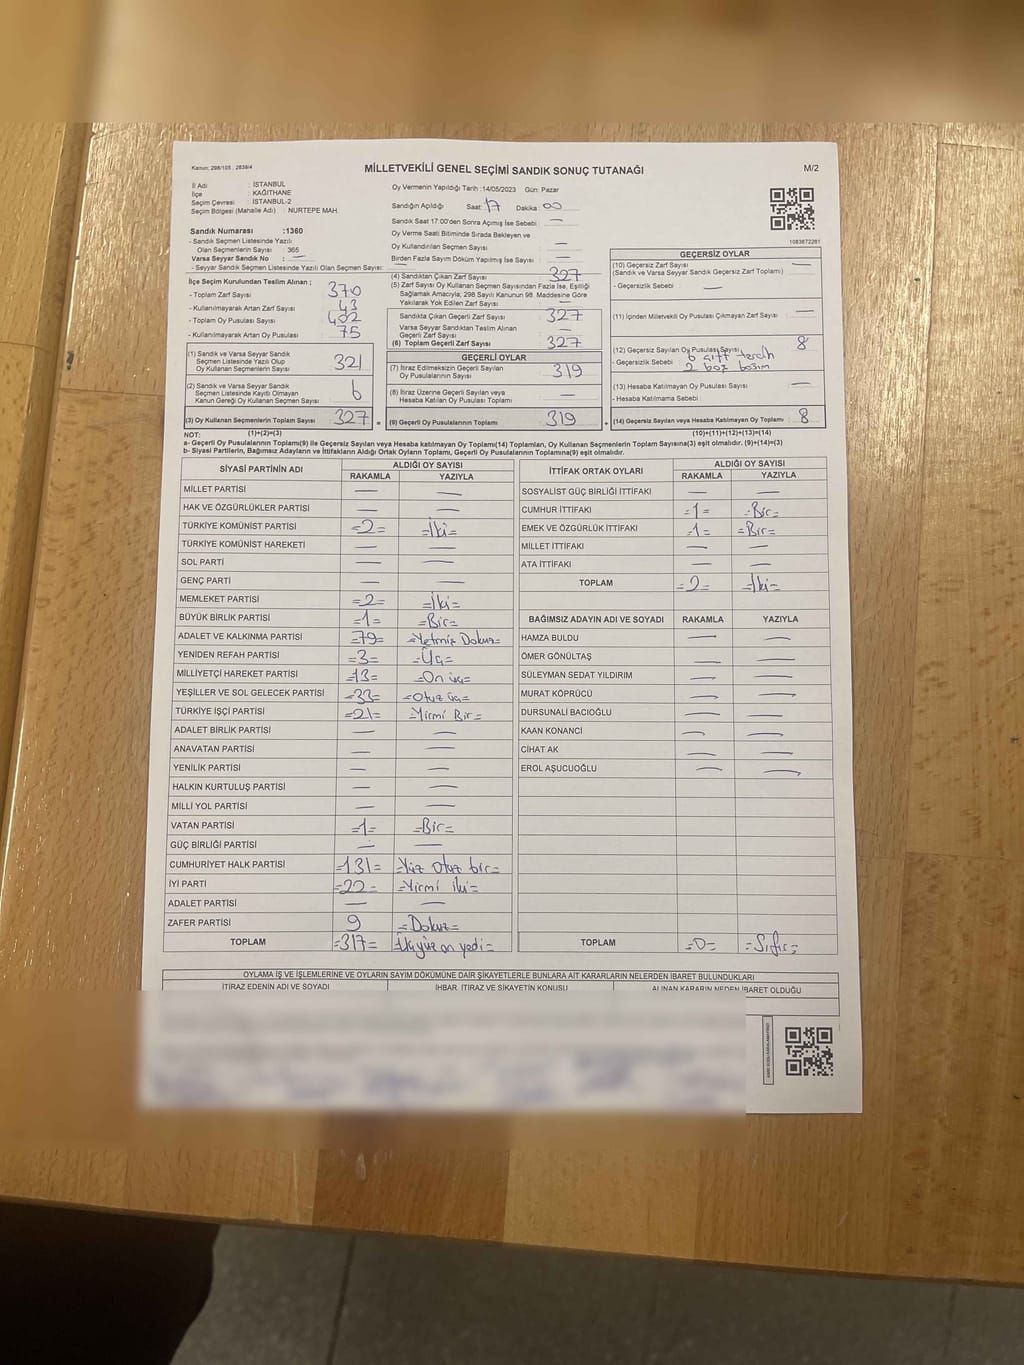 Kanun: 298/105 , 2839/4
MİLLETVEKİLİ GENEL SEÇİMİ SANDIK SONUÇ TUTANAĞI
M/2
İl Adı : İSTANBUL
İlçe : KAĞITHANE
Seçim Çevresi : İSTANBUL-2
Seçim Bölgesi (Mahalle Adı) : NURTEPE MAH.
Sandık Numarası :1360
- Sandık Seçmen Listesinde Yazılı
Olan Seçmenlerin Sayısı : 365
Varsa Seyyar Sandık No : —
- Seyyar Sandık Seçmen Listesinde Yazılı Olan Seçmen Sayısı: —
İlçe Seçim Kurulundan Teslim Alınan ;
- Toplam Zarf Sayısı : 370
- Kullanılmayarak Artan Zarf Sayısı : 43
- Toplam Oy Pusulası Sayısı : 402
- Kullanılmayarak Artan Oy Pusulası : 75
(1) Sandık ve Varsa Seyyar Sandık
Seçmen Listesinde Yazılı Olup
Oy Kullanan Seçmenlerin Sayısı 321
(2) Sandık ve Varsa Seyyar Sandık
Seçmen Listesinde Kayıtlı Olmayan
Kanun Gereği Oy Kullanan Seçmen Sayısı 6
(3) Oy Kullanan Seçmenlerin Toplam Sayısı 327 =
Oy Vermenin Yapıldığı Tarih :14/05/2023 Gün: Pazar
Sandığın Açıldığı Saat: 17 Dakika: 00
Sandık Saat 17:00'den Sonra Açımış İse Sebebi : —
Oy Verme Saati Bitiminde Sırada Bekleyen ve
Oy Kullandırılan Seçmen Sayısı —
Birden Fazla Sayım Dökümü Yapılmış İse Sayısı : —
(4) Sandıktan Çıkan Zarf Sayısı 327
(5) Zarf Sayısı Oy Kullanan Seçmen Sayısından Fazla İse, Eşitliği
Sağlamak Amacıyla, 298 Sayılı Kanunun 98. Maddesine Göre
Yakılarak Yok Edilen Zarf Sayısı —
Sandıkta Çıkan Geçerli Zarf Sayısı : 327
Varsa Seyyar Sandıktan Teslim Alınan
Geçerli Zarf Sayısı : —
(6) Toplam Geçerli Zarf Sayısı : 327
GEÇERLİ OYLAR
(7) İtiraz Edilmeksizin Geçerli Sayılan
Oy Pusulalarının Sayısı : 319
(8) İtiraz Üzerine Geçerli Sayılan veya
Hesaba Katılan Oy Pusulası Toplamı : —
(9) Geçerli Oy Pusulalarının Toplamı : 319 +
1083672261
GEÇERSİZ OYLAR
(10) Geçersiz Zarf Sayısı —
(Sandık ve Varsa Seyyar Sandık Geçersiz Zarf Toplamı)
- Geçersizlik Sebebi : —
(11) İçinden Milletvekili Oy Pusulası Çıkmayan Zarf Sayısı : —
(12) Geçersiz Sayılan Oy Pusulası Sayısı : 8
- Geçersizlik Sebebi : 6 çift tercih
2 boş basım
(13) Hesaba Katılmayan Oy Pusulası Sayısı : —
- Hesaba Katılmama Sebebi :
(14) Geçersiz Sayılan veya Hesaba Katılmayan Oy Toplamı : 8
NOT: (1)+(2)=(3) (10)+(11)+(12)+(13)=(14)
a- Geçerli Oy Pusulalarının Toplamı(9) ile Geçersiz Sayılan veya Hesaba katılmayan Oy Toplamı(14) Toplamları, Oy Kullanan Seçmenlerin Toplam Sayısına(3) eşit olmalıdır. (9)+(14)=(3)
b- Siyasi Partilerin, Bağımsız Adayların ve İttifakların Aldığı Ortak Oyların Toplamı, Geçerli Oy Pusulalarının Toplamına(9) eşit olmalıdır.
SİYASİ PARTİNİN ADI ALDIĞI OY SAYISI
RAKAMLA YAZIYLA
MİLLET PARTİSİ — —
HAK VE ÖZGÜRLÜKLER PARTİSİ — —
TÜRKİYE KOMÜNİST PARTİSİ =2= =İki=
TÜRKİYE KOMÜNİST HAREKETİ — —
SOL PARTİ — —
GENÇ PARTİ — —
MEMLEKET PARTİSİ =2= =İki=
BÜYÜK BİRLİK PARTİSİ =1= =Bir=
ADALET VE KALKINMA PARTİSİ =79= =Yetmiş Dokuz=
YENİDEN REFAH PARTİSİ =3= =Üç=
MİLLİYETÇİ HAREKET PARTİSİ =13= =On üç=
YEŞİLLER VE SOL GELECEK PARTİSİ =33= =Otuz üç=
TÜRKİYE İŞÇİ PARTİSİ =21= =Yirmi Bir=
ADALET BİRLİK PARTİSİ — —
ANAVATAN PARTİSİ — —
YENİLİK PARTİSİ — —
HALKIN KURTULUŞ PARTİSİ — —
MİLLİ YOL PARTİSİ — —
VATAN PARTİSİ =1= =Bir=
GÜÇ BİRLİĞİ PARTİSİ — —
CUMHURİYET HALK PARTİSİ =131= =Yüz Otuz bir=
İYİ PARTİ =22= =Yirmi iki=
ADALET PARTİSİ — —
ZAFER PARTİSİ 9 =Dokuz=
TOPLAM =317= =Üçyüz on yedi=
İTTİFAK ORTAK OYLARI ALDIĞI OY SAYISI
RAKAMLA YAZIYLA
SOSYALİST GÜÇ BİRLİĞİ İTTİFAKI — —
CUMHUR İTTİFAKI =1= =Bir=
EMEK VE ÖZGÜRLÜK İTTİFAKI =1= =Bir=
MİLLET İTTİFAKI — —
ATA İTTİFAKI — —
TOPLAM =2= =İki=
BAĞIMSIZ ADAYIN ADI VE SOYADI RAKAMLA YAZIYLA
HAMZA BULDU — —
ÖMER GÖNÜLTAŞ — —
SÜLEYMAN SEDAT YILDIRIM — —
MURAT KÖPRÜCÜ — —
DURSUNALİ BACIOĞLU — —
KAAN KONANCİ — —
CİHAT AK — —
EROL AŞUCUOĞLU — —
TOPLAM =0= =Sıfır=
OYLAMA İŞ VE İŞLEMLERİNE VE OYLARIN SAYIM DÖKÜMÜNE DAİR ŞİKAYETLERLE BUNLARA AİT KARARLARIN NELERDEN İBARET BULUNDUKLARI
İTİRAZ EDENİN ADI VE SOYADI İHBAR, İTİRAZ VE ŞİKAYETİN KONUSU ALINAN KARARIN NEDEN İBARET OLDUĞU